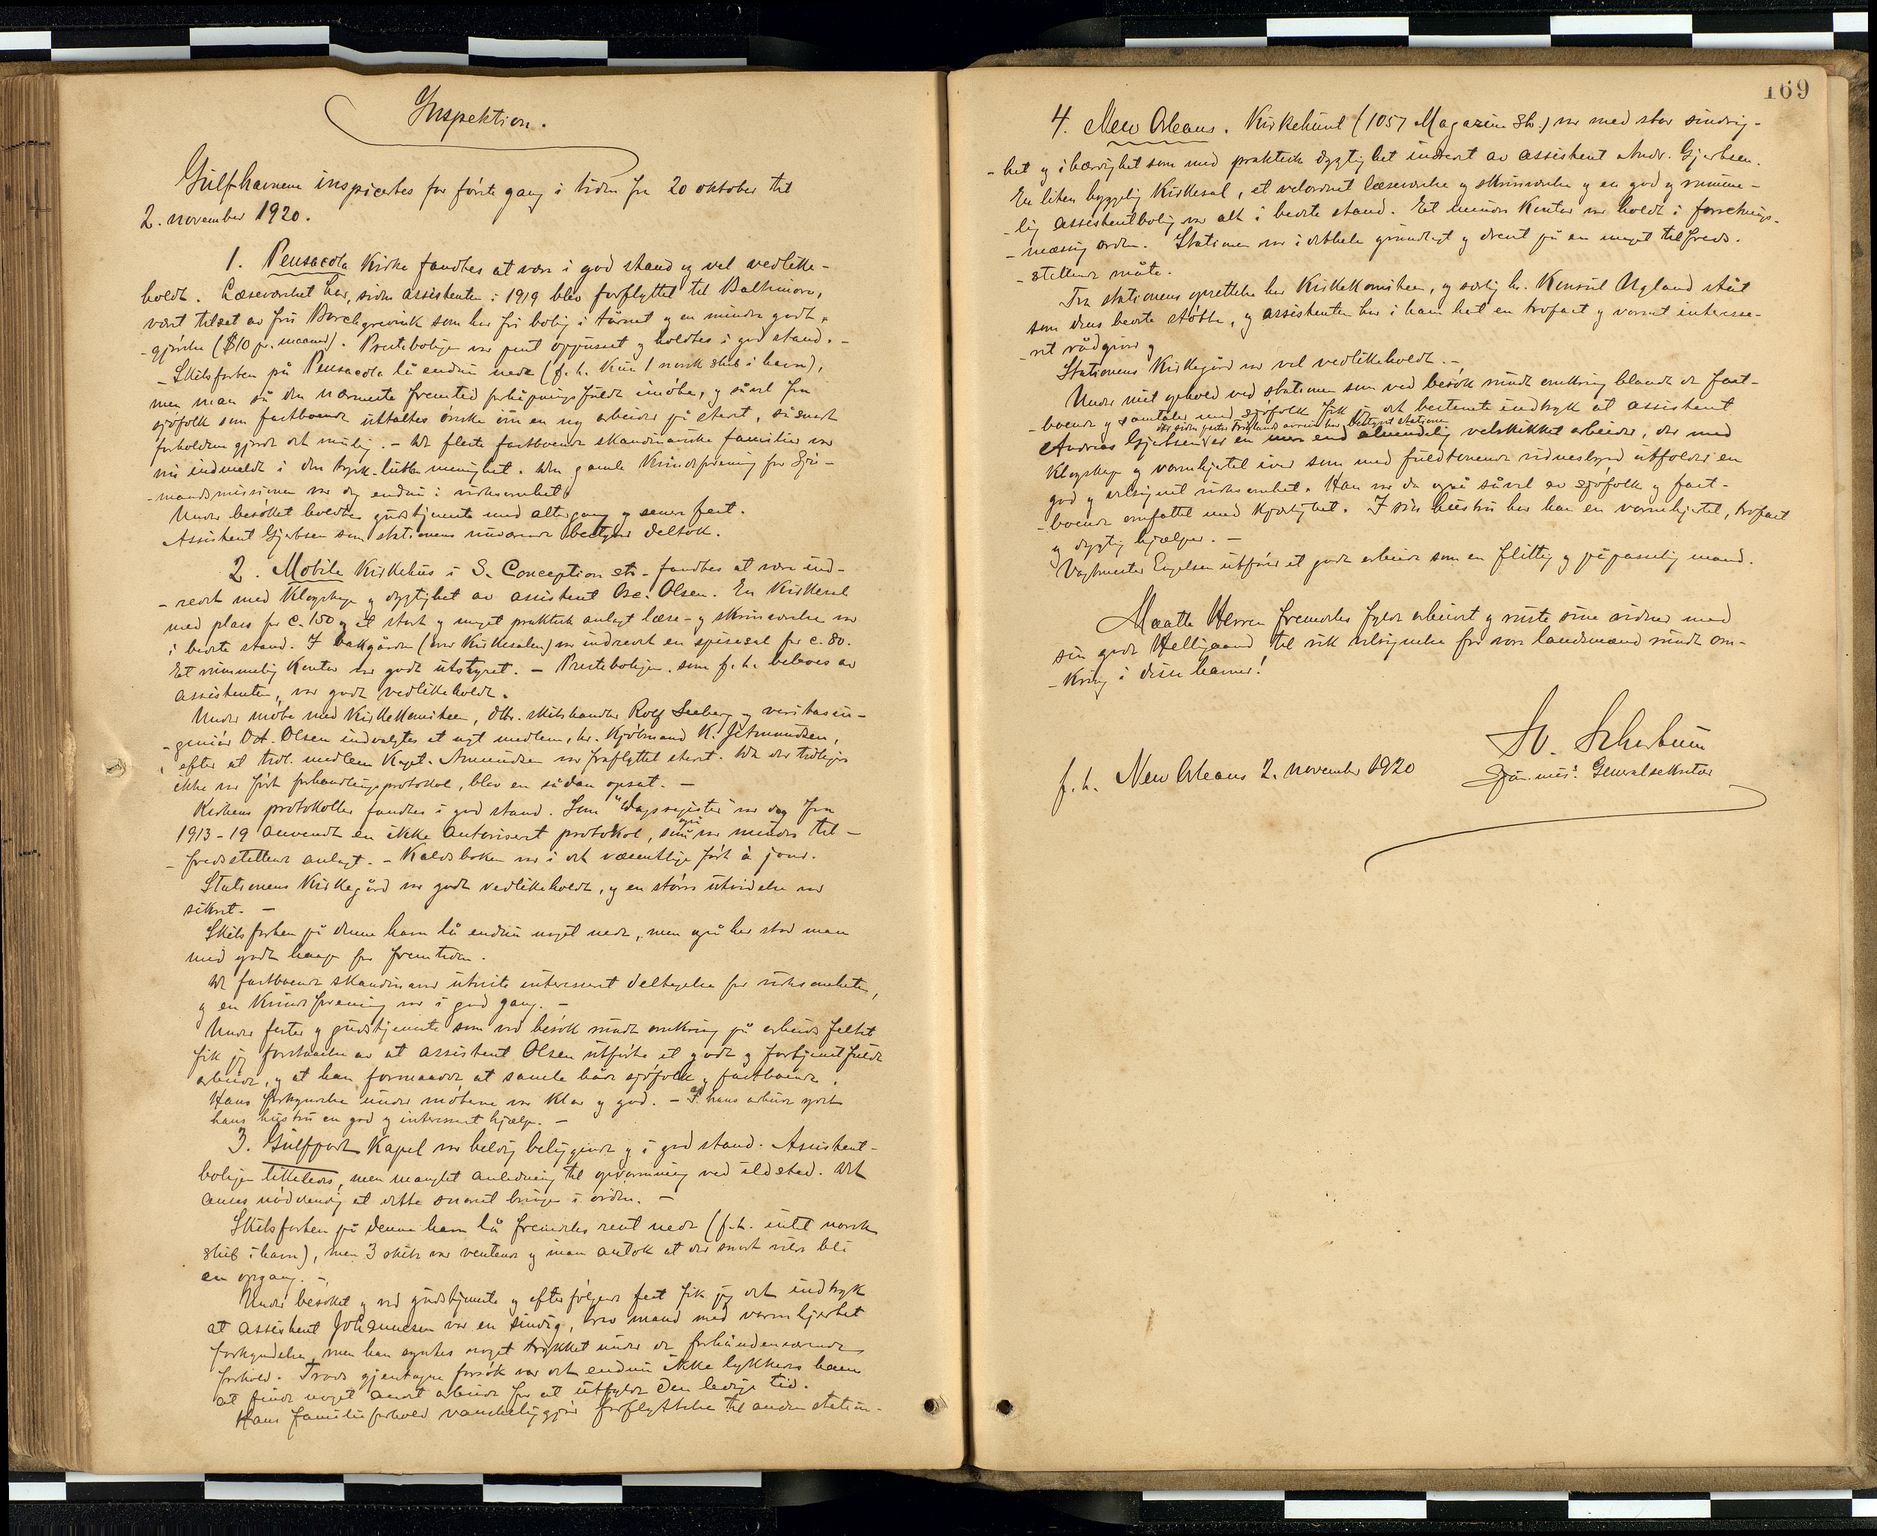 Inspektion.
Gulfhavnene inspicertes for første gang i tiden fra 20 oktober til
2. november 1920.
1. Pensacola Kirke fandtes at være i god stand og vel vedlike-
holdt. Læseværelset har, siden assistenten i 1919 blev forflyttet til Baltimore,
været tilset av fru Borchgrevink som har fri bolig i tårnet og en mindre godt-
gjørelse ($10 pr. maaned). Prestebolig var pent oppusset og holdtes i god stand. -
- Skibsfarten på Pensacola lå endnu nede (f.t. kun 1 norsk skib i havn),
men man så den nærmeste fremtid forhåpningsfuldt imøte, og såvel fra
sjøfolk som fastboende uttaltes ønske om en ny arbeider på stedet, såsnart
forholdene gjorde det mulig. - De fleste fastboende skandinaviske familier var
nu indmeldt i den lutherske menighet. Den gamle Kvindeforening for Sjø-
-mandsmissionen var dog endnu i virksomhet.
Under besøket holdtes gudstjeneste med altergang og senere fest.
Assistent Gjertsen som stationens nuværende bestyrer deltok.
2. Mobile Kirkehus i S. Conception str. fandtes at være ind-
-redet med Klogskap og dygtighet av assistent Osc. Olsen. En Kirkesal
med plass for c. 150 og et stort og meget praktisk anlagt læse- og skriveværelse var
i bedste stand. I bakgården (over Kirkesalen) var indredet en spisesal for c. 80.
Et rummelig Kontor var godt utstyret. - Presteboligen, som f.t. beboes av
assistenten, var godt vedlikeholdt.
Under møte med Kirkekomiteen, Dhr. skibshandler Rolf Seeberg og veritasin-
-geniør Olsen indvalgtes et nyt medlem, hr. Kjøbmand K. Jetmundsen,
efter at tidl. medlem Kapt. Amundsen var fraflyttet stedet. Da der tidligere
ikke var ført forhandlingsprotokol, blev en sådan opsat. -
Kirkens protokoller fandtes i god stand. Som "Dagsregister" var dog fra
1913-19 anvendt en ikke autoriseret protokol, som også var mindre til-
-fredsstillende anlagt. - Kaldsboken var i det væsentlige ført à jour.
Stationens Kirkegård var godt vedlikeholdt, og en større utvidelse var
sikret. -
Skibsfarten på denne havn lå endnu noget nede, men også her stod man
med godt haap for fremtiden.
De fastboende skandinaver utviste interessert deltagelse for virksomheten,
og en Kvindeforening var i god gang. -
Under fester og gudstjeneste som ved besøk rundt omkring på arbeidsfeltet
fik jeg forståelse av at assistent Olsen utførte et godt og fortjenstfuldt
arbeide, og at han formaadde at samle både sjøfolk og fastboende.
Hans forkyndelse under møtene var klar og god. - I hans arbeide ydet
hans hustru en god og interessert hjælp. -
3. Gulfport Kapel var heldig beliggende og i god stand. Assistent-
boligen likeledes, men manglet anledning til opvarmning ved ildsted. Det
ansees nødvendig at dette snarest bringes i orden. -
Skibsfarten på denne havn lå fremdeles rent nede (f.t. intet norsk
skib i havn), men 3 skibe var ventende og man antok at der snart vilde bli
en opgang. -
Under besøket og ved gudstjeneste og efterfølgende fest fik jeg det indtryk
at assistent Johannesen var en sindig, bra mand med varmhjertet
forkyndelse, men han syntes noget trykket under de forhåndenværende
forhold. Trods gjentagne forsøk var det endnu ikke lykkedes ham
at finde noget andet arbeide for at utfylde den ledige tid.
Hans familieforhold vanskeliggjør forflyttelse til anden station.
169
4. New Orleans. Kirkelund (1057 Magazine Str.) var med stor sindrig-
-het og ihærdighet som med praktisk dygtighet indredet av assistent Andr. Gjertsen.
En liten hyggelig Kirkesal, et velordnet læseværelse og skriveværelse og en god og rumme-
-lig assistentbolig var alt i bedste stand. Et mindre Kontor var holdt i forretnings-
-mæssig orden. Stationen var i det hele grundigt og drevet på en meget tilfreds-
-stillende måte.
Fra stationens oprettelse har Kirkekomiteen, og særlig hr. Konsul Ugland stået
som dens bedste støtte, og assistenten har i ham hat en trofast og varmt interesse-
-ret rådgiver.
Stationens Kirkegård var vel vedlikeholdt. -
Under mit ophold ved stationen som ved besøk rundt omkring blandt de fast-
boende og samtaler med sjøfolk fik jeg det bestemte indtryk at assistent
der siden pastor avreise har bestyret stationen
Andreas Gjertsen er en mere end almindelig velskikket arbeider, der med
Klogskap og varmhjertet iver som med fuldtonende vidnesbyrd utfolder en
god og velsignet virksomhet. Han var da også såvel av sjøfolk og fast-
-boende omfattet med kjærlighet. I sin hustru har han en varmhjertet, trofast
og dygtig hjælper. -
Vagtmester Engelsen utfører et godt arbeide som en flittig og påpasselig mand.
Maatte Herren fremdeles fylde arbeidet og ruste sine vidner med
sin gode Helligaand til rik velsignelse for vore landsmænd rundt om-
-kring i disse havne!
f.t. New Orleans 2. november 1920
Sjøm. mis. Generalsekretær